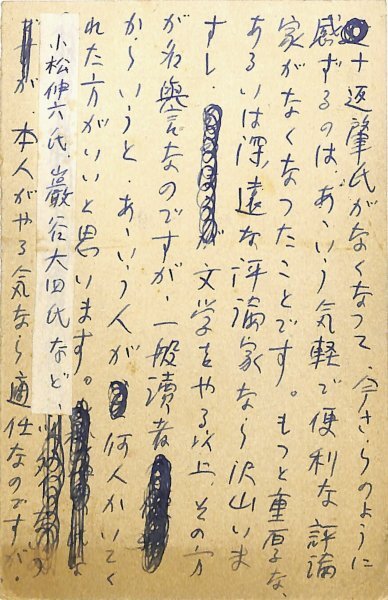 十返肇氏がなくなつて、今さらのように
感ずるのは、あゝいう気軽で便利な評論
家がなくなつたことです。もつと重厚な、
あるいは深遠な評論家なら沢山いま
すし、が文学をやる以上、その方
が名誉なのですが、一般読者
からいうと、あゝいう人が何人かいてく
れた方がいいと思います。
小松伸六氏、巌谷大四氏など、
が、本人がやる気なら適任なのですが。